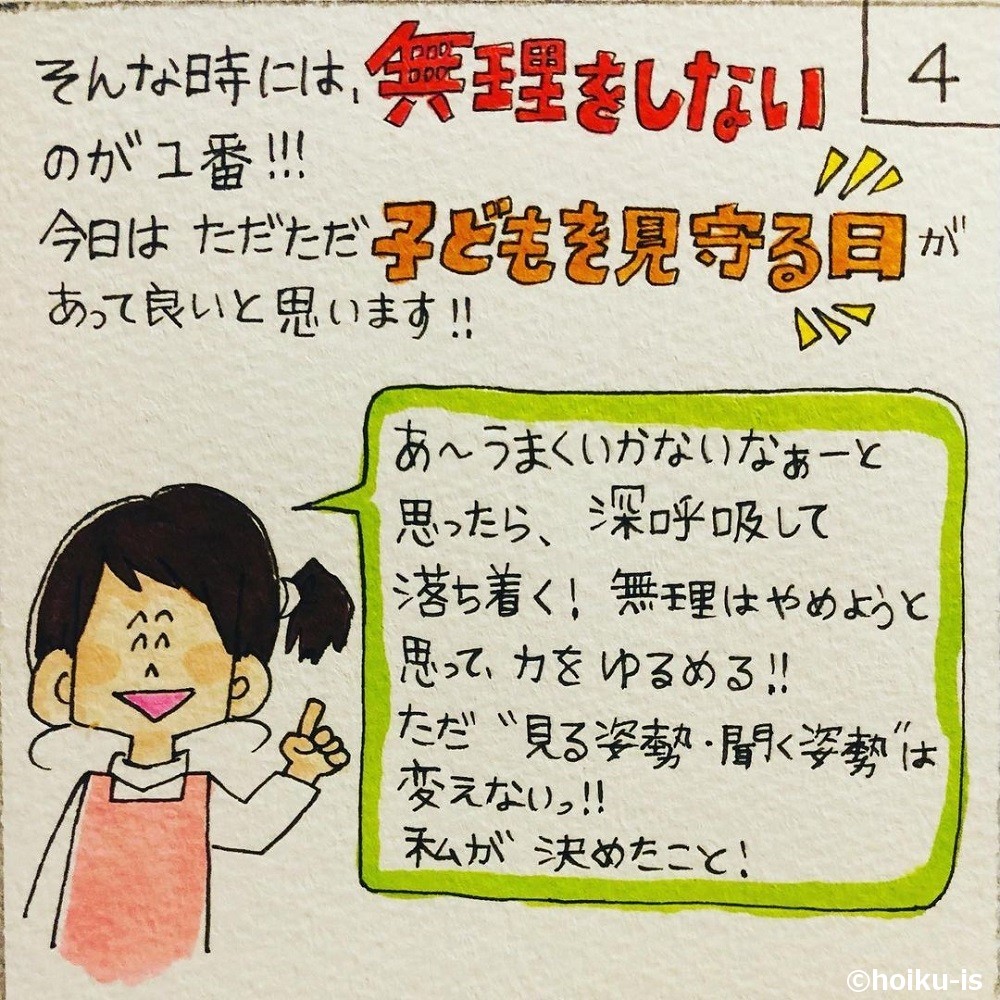 4
そんな時には、無理をしない
のが1番!!!
今日は ただただ子どもを見守る日が
あって良いと思います!!
あ～うまくいかないなぁーと
思ったら、深呼吸して
落ち着く! 無理はやめようと
思って、力をゆるめる!!
ただ"見る姿勢・聞く姿勢"は
変えないっ!!
私が決めたこと!
©hoiku-is